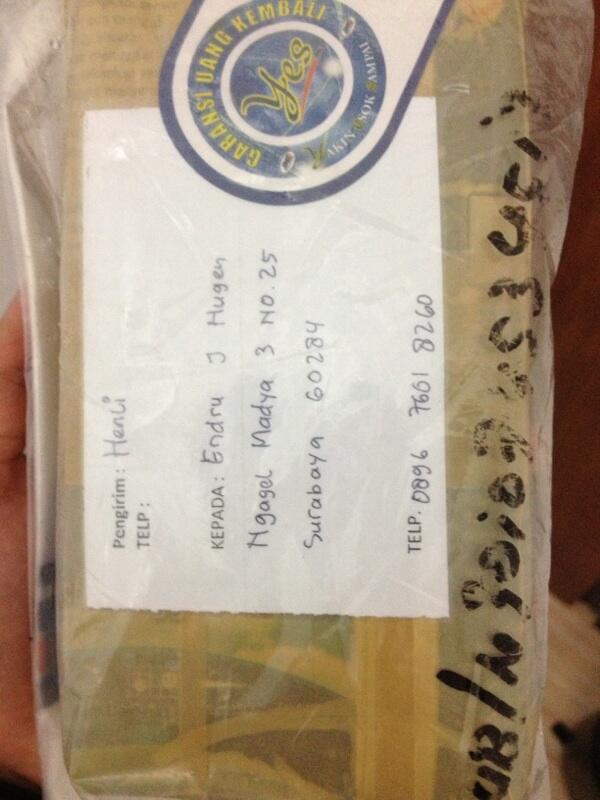 GARANSI UANG KEMBALI
Yes
YAKIN ESOK SAMPAI
Pengirim: Henli
TELP:
KEPADA: Endru J Hugen
Ngagel Madya 3 NO. 25
Surabaya 60284
TELP. 0896 7601 8260